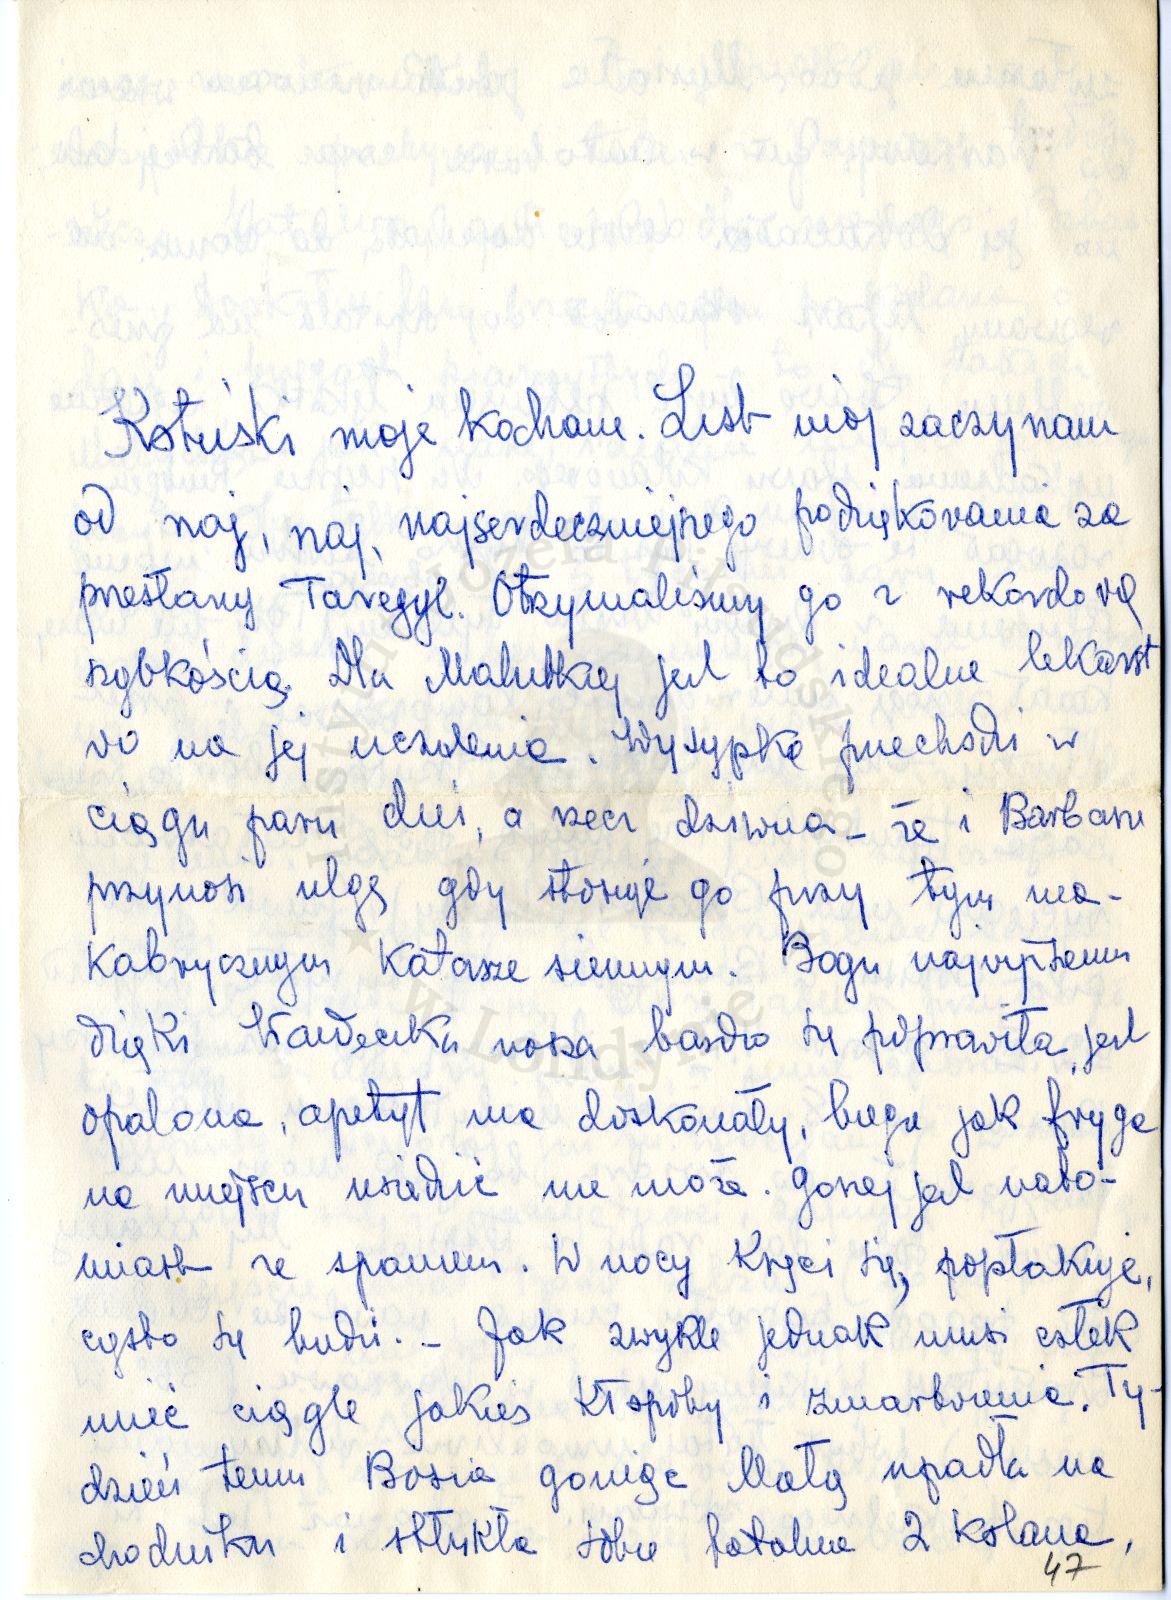 Kotuśki moje kochane. List mój zaczynam
od naj, naj, najserdeczniejszego podziękowania za
przesłany Tavegyl. Otrzymaliśmy go z rekordową
szybkością. Dla Malutkiej jest to idealne lekarst
wo na jej uczulenia. Wysypka przechodzi w
ciągu paru dni, a rzecz dziwna – że i Barbaże
przynosi ulgę gdy stosuje go przy tym ma-
kabrycznym katarze siennym. Bogu najwyższemu
dzięki nasza bardzo się poprawiła, jest
opalona, apetyt ma doskonały, biega jak fryga
na miejscu usiedzieć nie może. Gorzej jest nato-
miast ze spaniem. W nocy kręci się, popłakuje,
często się budzi. – Jak zwykle jednak musi człek
mieć ciągle jakieś kłopoty i zmartwienia. Ty-
dzień temu Bosia goniąc Małą upadła na
chodniku i stłukła sobie fatalnie 2 kolana,
47
Instytut Józefa Piłsudskiego
★ w Londynie